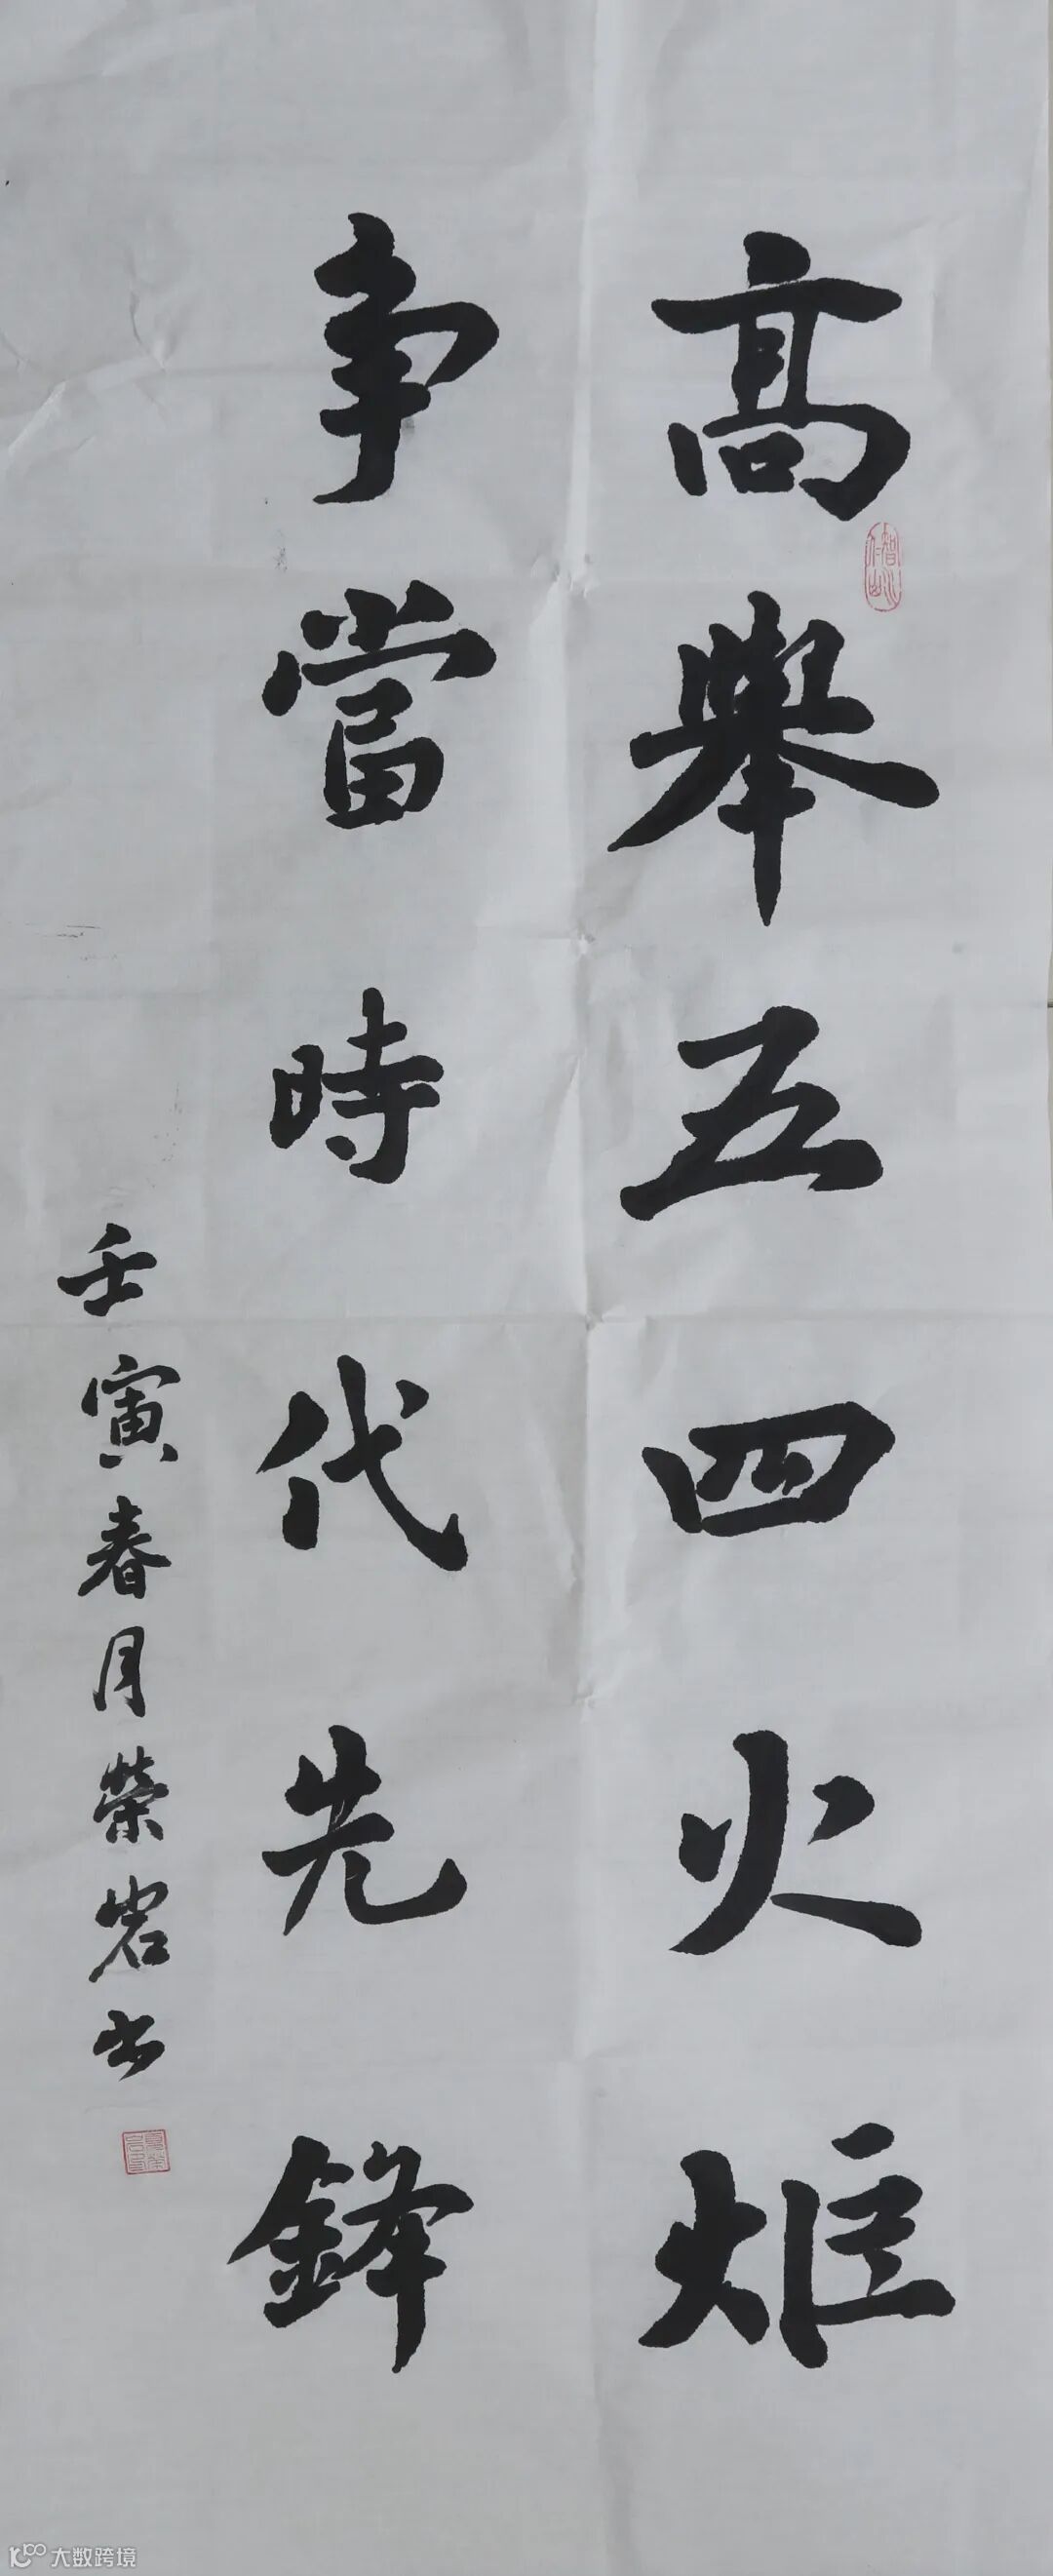 高舉五四火炬
争當時代先鋒
壬寅春月榮岩书
大数跨境